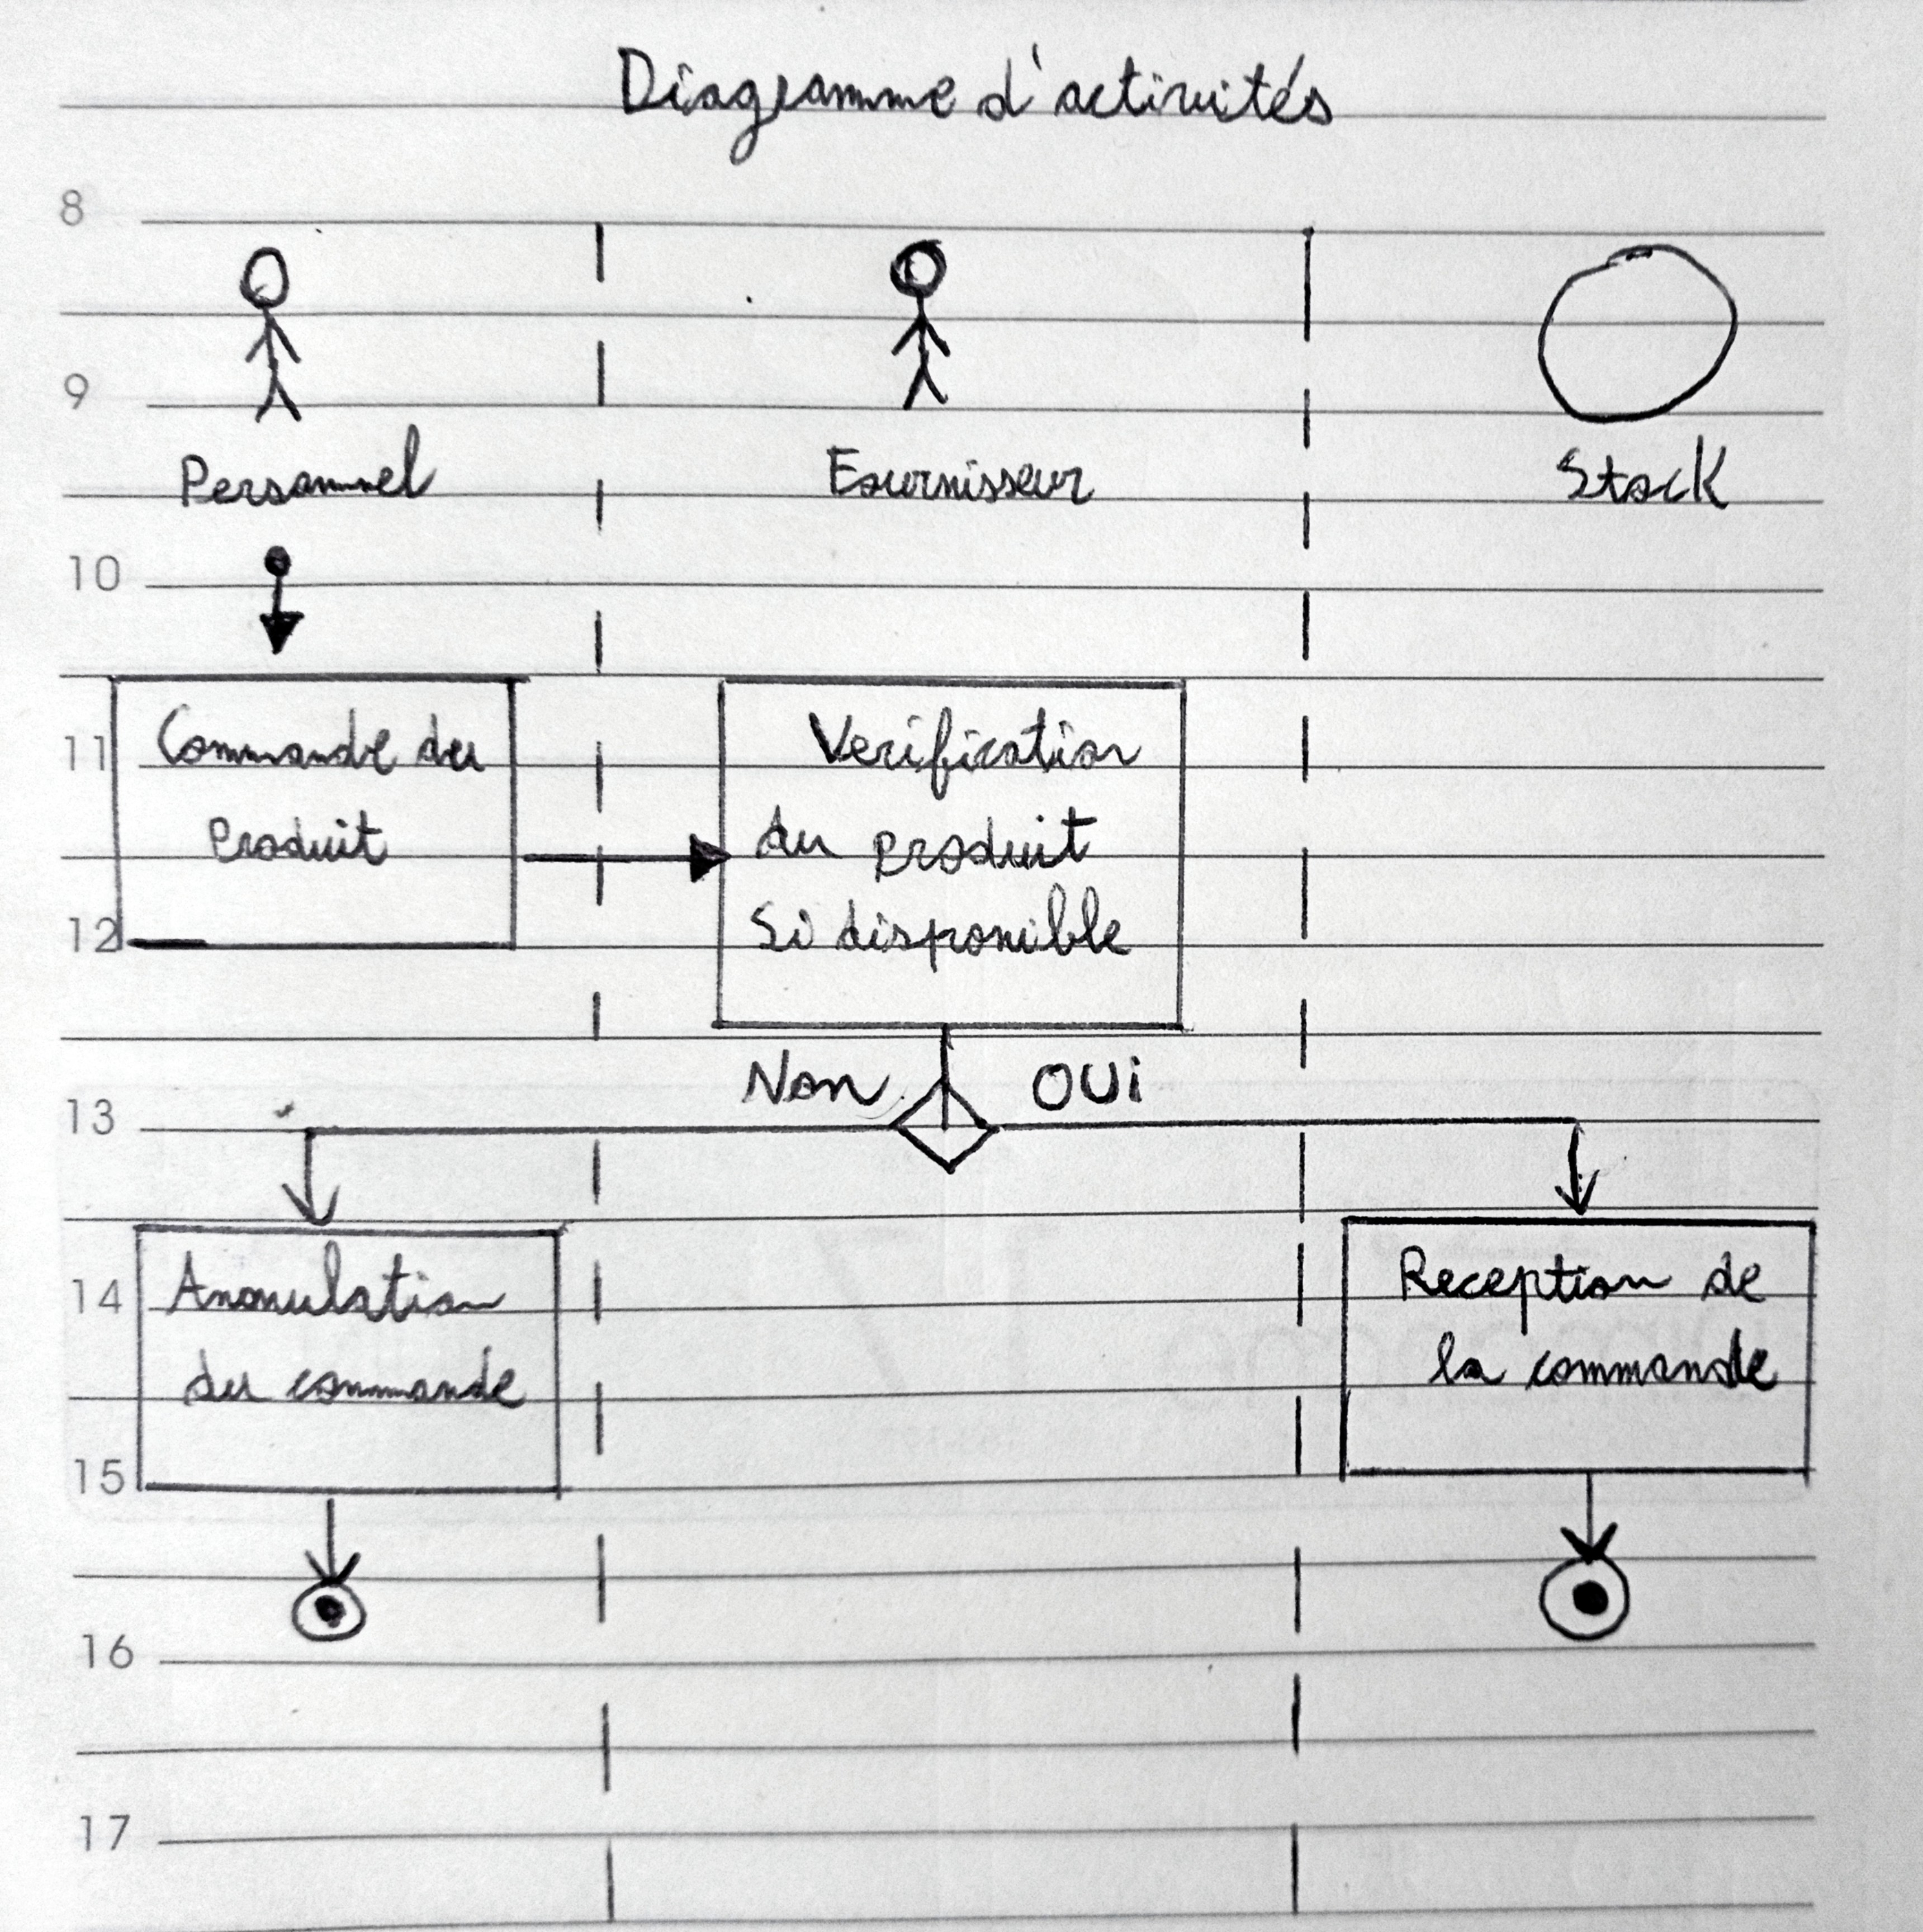 Diagramme d'activités
8
9
Personnel
Fournisseur
Stock
10
11
Commande du
Produit
Verification
du produit
Si disponible
12
Non
OUi
13
14
Annulation
du commande
Reception de
la commande
15
16
17